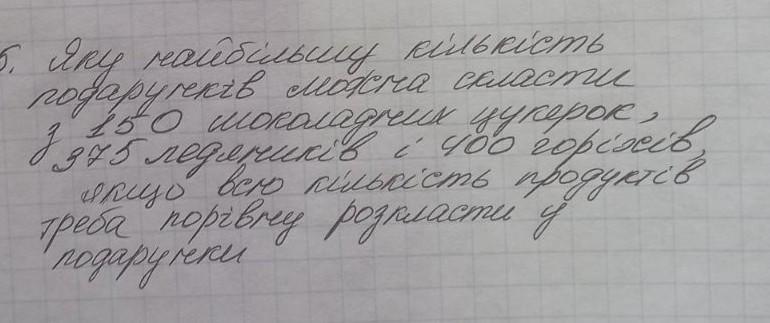 5. Яку найбільшу кількість
подарунків можна скласти
з 150 шоколадних цукерок,
375 леденників і 400 горіхів,
якщо всю кількість продуктів
треба порівну розкласти у
подарунки